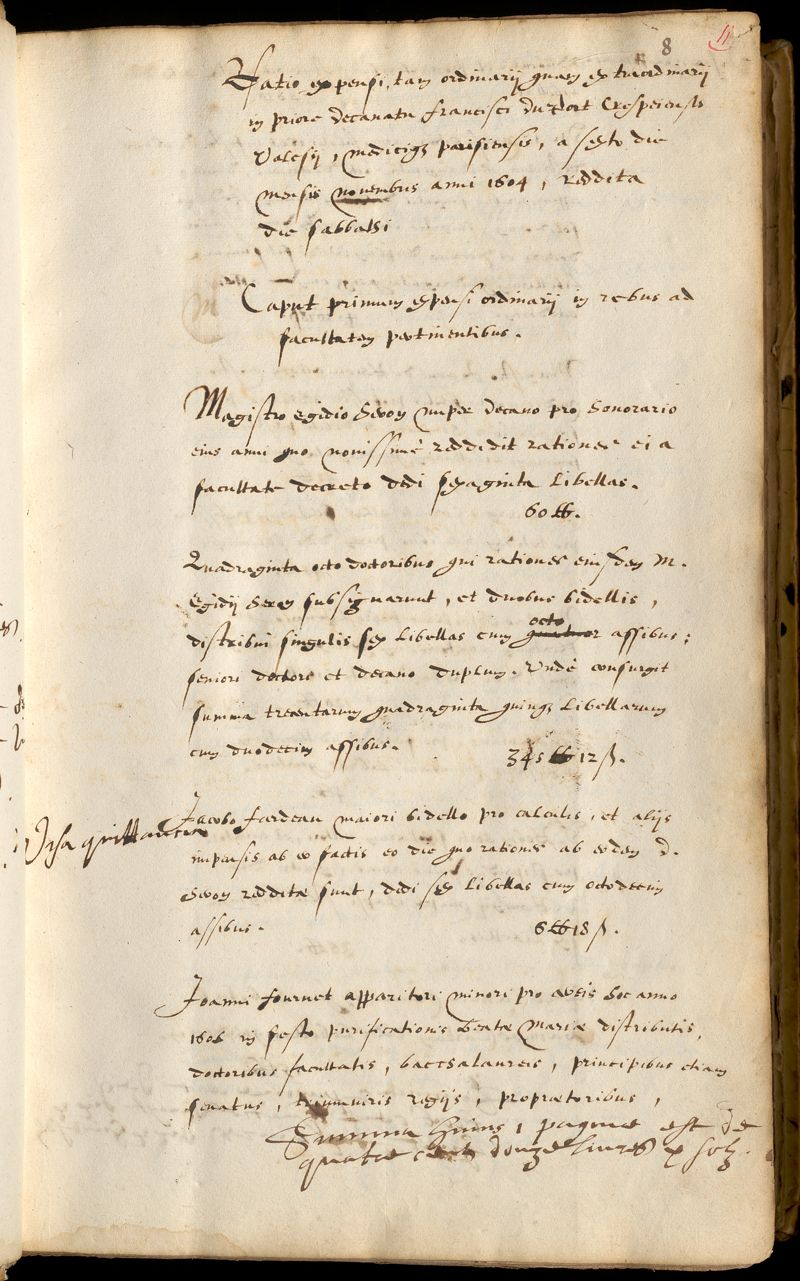 8 11
Ratio expensi, tam ordinarij quam extraordinarij
in priore decanatu Francisci Duport Crespeiensis
Valesij, mediciq; parisiensis, a sexto die
mensis novembris anni 1604, reddita
die sabbathi
Caput primum expensi ordinarij in rebus ad
facultatem pertinentibus.
Magistro Egidio Heron nuper decano pro honorario
eius anni quo novissimè reddidit rationes ei a
facultate decreto dedi sexaginta libellas.
60 ℔.
Quadraginta octo doctoribus qui rationes eiusdem M.
Egidij Heron subsignarunt, et duobus bidellis,
distribui singulis sex libellas cum octo
quatuor assibus;
seniori doctore et decano duplum. Undè consurgit
summa trecentarum quadraginta quinq; libellarum
cum duodecim assibus.
345 ℔ 12 ß.
Jacobo Fardeau maiori bidello pro calculis, et alijs
impensis ab eo factis eo die quo rationes ab eodem d.
Heron redditæ sunt, dedi sex libellas cum octodecim
assibus.
6 ℔ 18 ß.
quittance
Joanni Fournet apparitori minori pro cereis hoc anno
1606 in festo purificationis beatæ Mariæ distributis,
doctoribus facultatis, baccalaureis, principibus etiam
senatus, triumviris regijs, proprætoribus,
Summa huius 1 paginæ est de
quatre cents douze livres x solz.